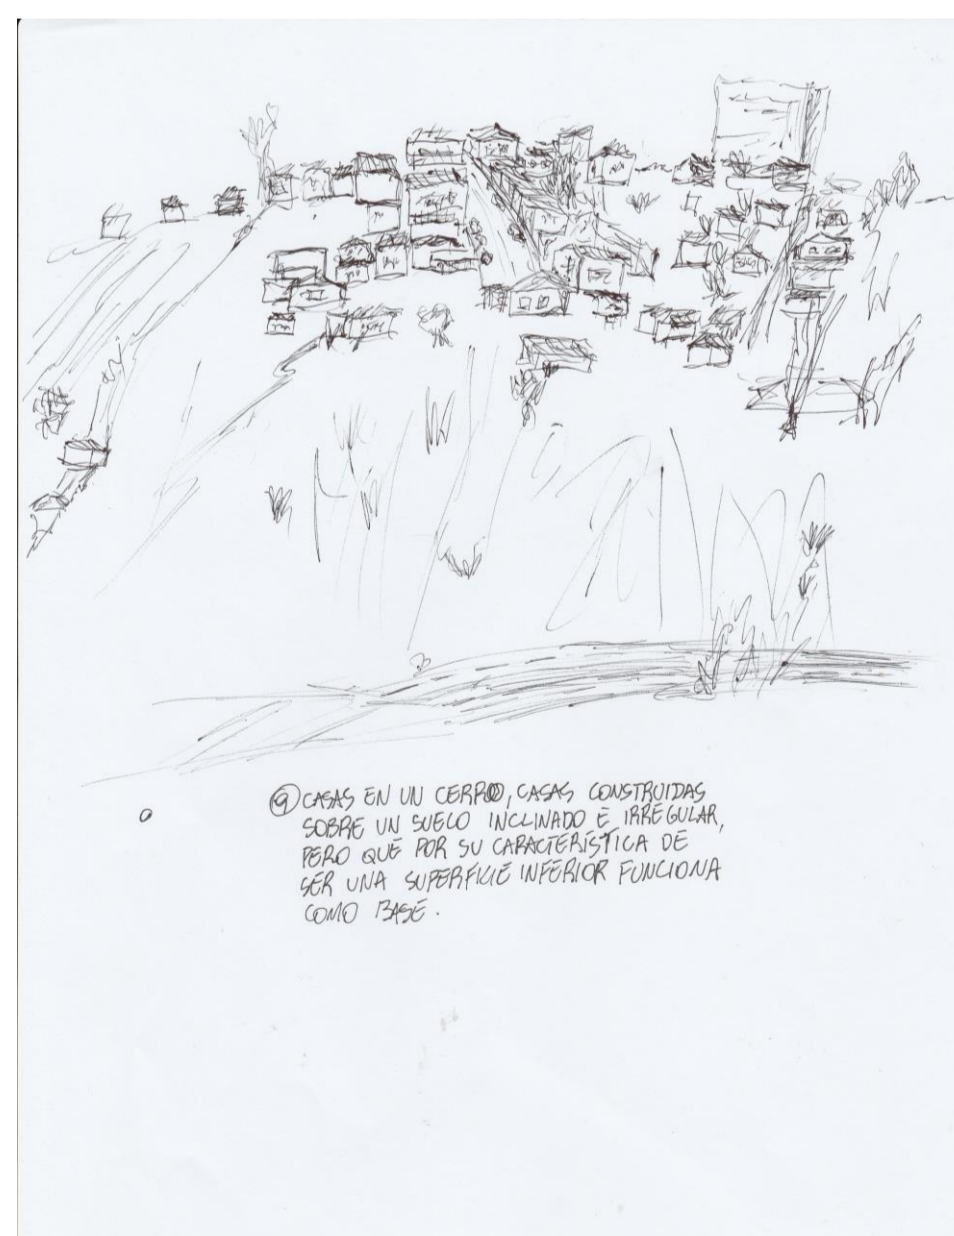 ⑨ CASAS EN UN CERRO, CASAS CONSTRUIDAS
SOBRE UN SUELO INCLINADO E IRREGULAR,
PERO QUE POR SU CARACTERÍSTICA DE
SER UNA SUPERFICIE INFERIOR FUNCIONA
COMO BASE.